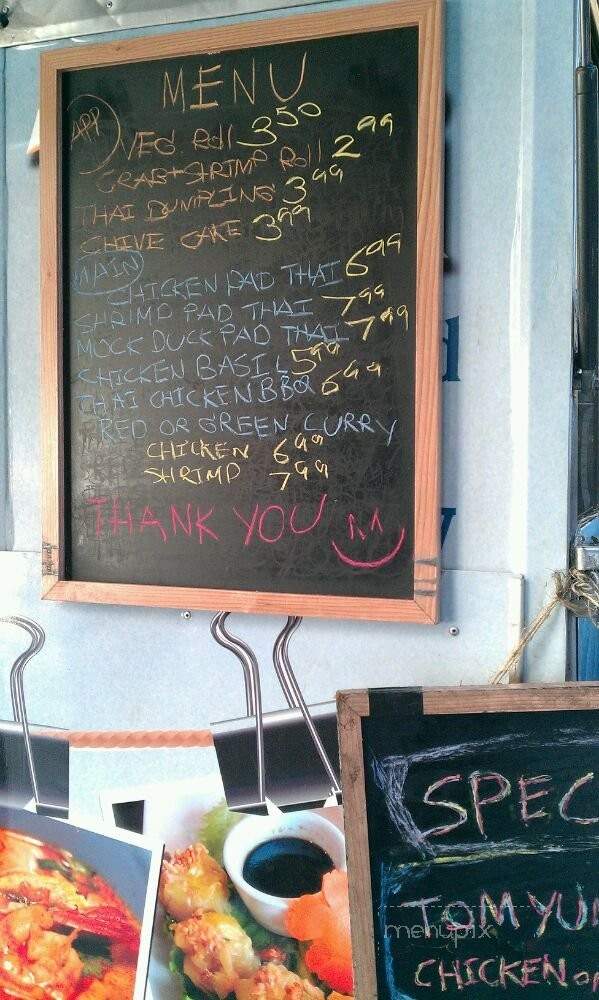 MENU
APP
VEG Roll 3.50
CRAB+SHRIMP Roll 2.99
THAI DUMPLING 3.99
CHIVE CAKE 3.99
MAIN
CHICKEN PAD THAI 6.99
SHRIMP PAD THAI 7.99
MOCK DUCK PAD THAI 7.99
CHICKEN BASIL 5.99
THAI CHICKEN BBQ 6.99
RED OR GREEN CURRY
CHICKEN 6.99
SHRIMP 7.99
THANK YOU
SPEC
TOM YUM
menupix
CHICKEN OR